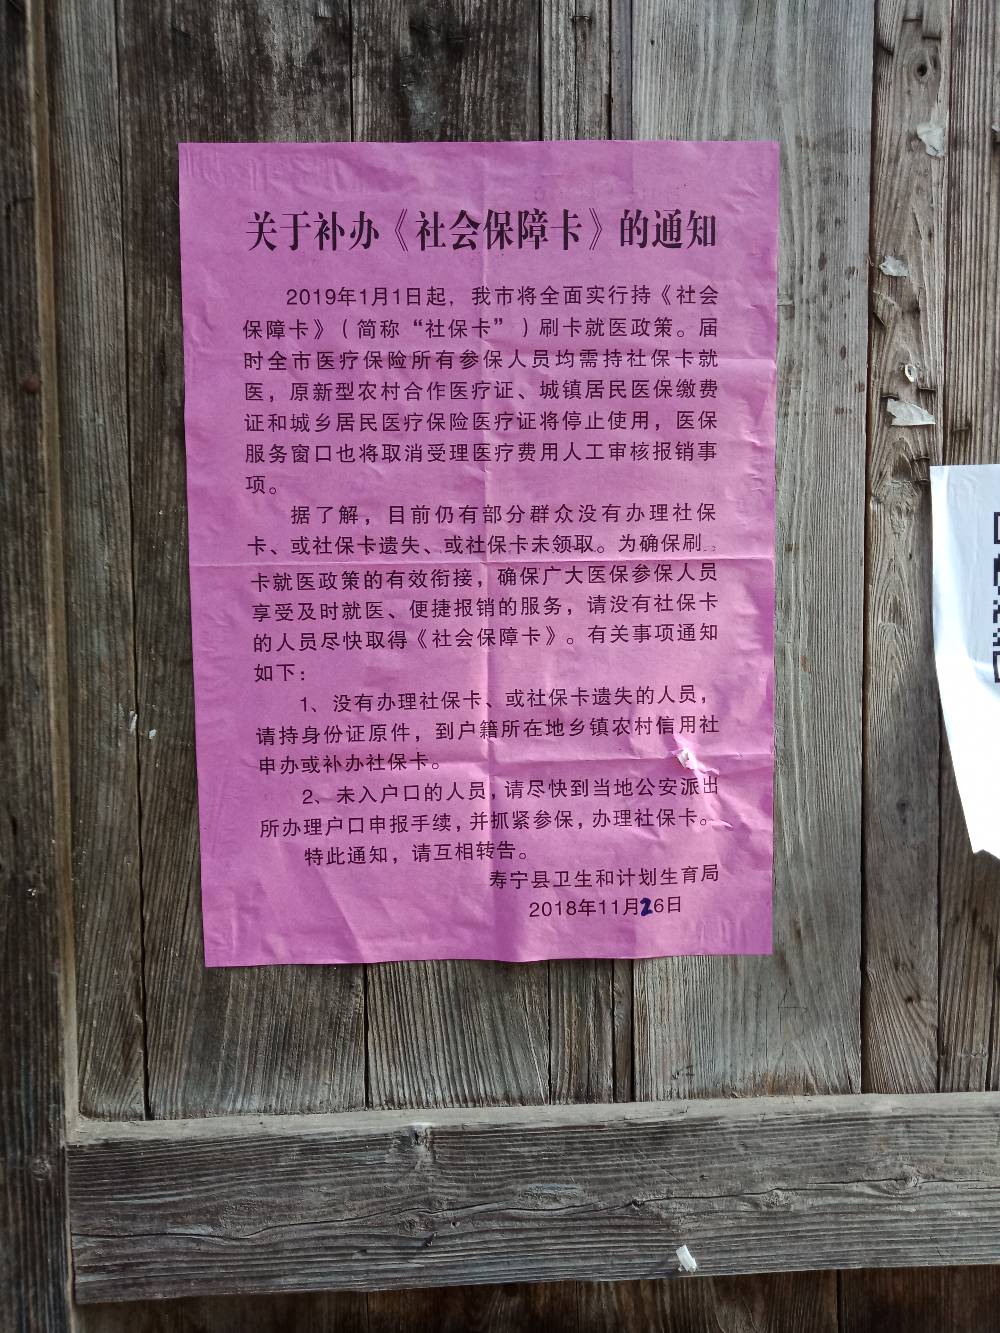 关于补办《社会保障卡》的通知
2019年1月1日起，我市将全面实行持《社会
保障卡》（简称“社保卡”）刷卡就医政策。届
时全市医疗保险所有参保人员均需持社保卡就
医，原新型农村合作医疗证、城镇居民医保缴费
证和城乡居民医疗保险医疗证将停止使用，医保
服务窗口也将取消受理医疗费用人工审核报销事
项。
据了解，目前仍有部分群众没有办理社保
卡、或社保卡遗失、或社保卡未领取。为确保刷
卡就医政策的有效衔接，确保广大医保参保人员
享受及时就医、便捷报销的服务，请没有社保卡
的人员尽快取得《社会保障卡》。有关事项通知
如下：
1、没有办理社保卡、或社保卡遗失的人员，
请持身份证原件，到户籍所在地乡镇农村信用社
申办或补办社保卡。
2、未入户口的人员，请尽快到当地公安派出
所办理户口申报手续，并抓紧参保，办理社保卡。
特此通知，请互相转告。
寿宁县卫生和计划生育局
2018年11月26日